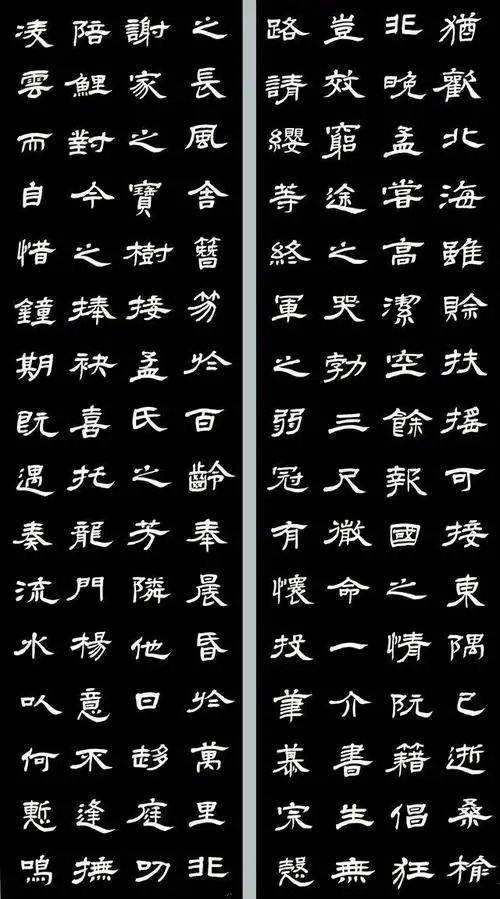 猶歡北海雖賒扶搖可接東隅已逝桑榆
非晚孟嘗高潔空餘報國之情阮籍倡狂
豈效窮途之哭勃三尺微命一介書生無
路請纓等終軍之弱冠有懷投筆慕宗愨
之長風舍簪笏於百齡奉晨昏於萬里非
謝家之寶樹接孟氏之芳隣他日趍庭叨
陪鯉對今之捧袂喜托龍門楊意不逢撫
凌雲而自惜鐘期既遇奏流水以何慙鳴